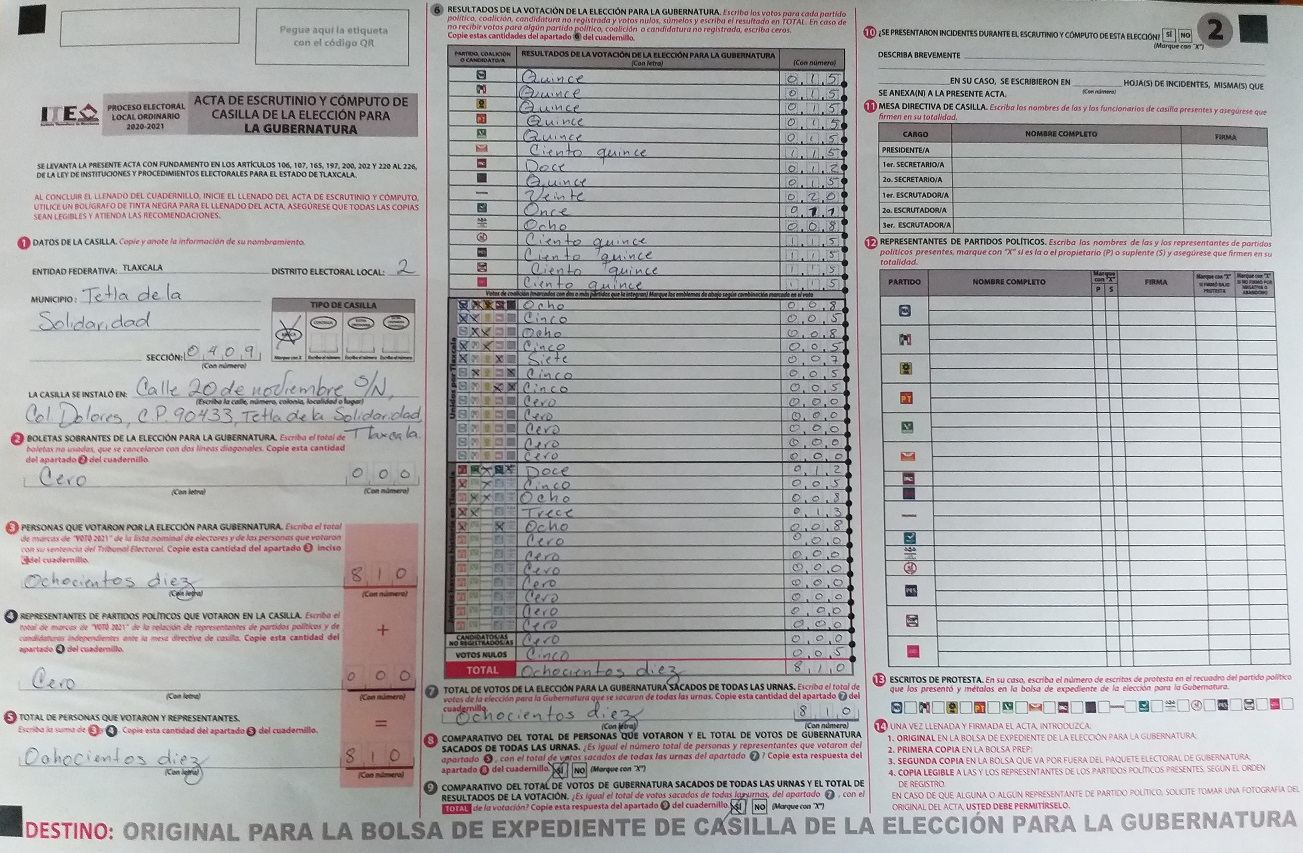 Pegue aquí la etiqueta
con el código QR
ITE
PROCESO ELECTORAL
LOCAL ORDINARIO
2020-2021
ACTA DE ESCRUTINIO Y CÓMPUTO DE
CASILLA DE LA ELECCIÓN PARA
LA GUBERNATURA
SE LEVANTA LA PRESENTE ACTA CON FUNDAMENTO EN LOS ARTÍCULOS 106, 107, 165, 197, 200, 202 Y 220 AL 226,
DE LA LEY DE INSTITUCIONES Y PROCEDIMIENTOS ELECTORALES PARA EL ESTADO DE TLAXCALA.
AL CONCLUIR EL LLENADO DEL CUADERNILLO, INICIE EL LLENADO DEL ACTA DE ESCRUTINIO Y CÓMPUTO,
UTILICE UN BOLÍGRAFO DE TINTA NEGRA PARA EL LLENADO DEL ACTA, ASEGÚRESE QUE TODAS LAS COPIAS
SEAN LEGIBLES Y ATIENDA LAS RECOMENDACIONES.
1 DATOS DE LA CASILLA. Copie y anote la información de su nombramiento.
ENTIDAD FEDERATIVA: TLAXCALA DISTRITO ELECTORAL LOCAL: 2
MUNICIPIO: Tetla de la
Solidaridad
TIPO DE CASILLA
SECCIÓN: 0409
(Con número)
LA CASILLA SE INSTALÓ EN: Calle 20 de noviembre S/N,
(Escriba la calle, número, colonia, localidad o lugar)
Col. Dolores, C.P. 90433, Tetla de la Solidaridad
Tlaxcala.
2 BOLETAS SOBRANTES DE LA ELECCIÓN PARA LA GUBERNATURA. Escriba el total de
boletas no usadas, que se cancelaron con dos líneas diagonales. Copie esta cantidad
del apartado 2 del cuadernillo.
Cero 000
(Con letra) (Con número)
3 PERSONAS QUE VOTARON POR LA ELECCIÓN PARA GUBERNATURA. Escriba el total
de marcas de "VOTÓ 2021" de la lista nominal de electores y de las personas que votaron
con su sentencia del Tribunal Electoral. Copie esta cantidad del apartado 3 inciso
del cuadernillo.
Ochocientos diez 810
(Con letra) (Con número)
4 REPRESENTANTES DE PARTIDOS POLÍTICOS QUE VOTARON EN LA CASILLA. Escriba el
total de marcas de "VOTÓ 2021" de la relación de representantes de partidos políticos y de
candidaturas independientes ante la mesa directiva de casilla. Copie esta cantidad del
apartado 4 del cuadernillo.
+
Cero 000
(Con letra) (Con número)
5 TOTAL DE PERSONAS QUE VOTARON Y REPRESENTANTES.
Escriba la suma de 3 y 4. Copie esta cantidad del apartado 5 del cuadernillo.
=
Ochocientos diez 810
(Con letra) (Con número)
6 RESULTADOS DE LA VOTACIÓN DE LA ELECCIÓN PARA LA GUBERNATURA. Escriba los votos para cada partido
político, coalición, candidatura no registrada y votos nulos, súmelos y escriba el resultado en TOTAL. En caso de
no recibir votos para algún partido político, coalición o candidatura no registrada, escriba ceros.
Copie estas cantidades del apartado 6 del cuadernillo.
PARTIDO, COALICIÓN
O CANDIDATO/A
RESULTADOS DE LA VOTACIÓN DE LA ELECCIÓN PARA LA GUBERNATURA
(Con letra) (Con número)
Quince 015
Quince 015
Quince 015
Quince 015
Quince 015
Ciento quince 115
Doce 012
Quince 015
Veinte 020
Once 011
Ocho 008
Ciento quince 115
Ciento quince 115
Ciento quince 115
Ciento quince 115
Votos de coalición (marcados con dos o más partidos que la integran) Marque los emblemas de abajo según combinación marcada en el voto
Ocho 008
Cinco 005
Ocho 008
Cinco 005
Siete 007
Cinco 005
Cinco 005
Cero 000
Cero 000
Cero 000
Cero 000
Cero 000
Doce 012
Cinco 005
Ocho 008
Trece 013
Ocho 008
Cero 000
Cero 000
Cero 000
Cero 000
Cero 000
Cero 000
Cero 000
CANDIDATOS/AS
NO REGISTRADOS/AS Cero 000
VOTOS NULOS Cinco 005
TOTAL Ochocientos diez 810
7 TOTAL DE VOTOS DE LA ELECCIÓN PARA LA GUBERNATURA SACADOS DE TODAS LAS URNAS. Escriba el total de
votos de la elección para la Gubernatura que se sacaron de todas las urnas. Copie esta cantidad del apartado 7 del
cuadernillo.
Ochocientos diez 810
(Con letra) (Con número)
8 COMPARATIVO DEL TOTAL DE PERSONAS QUE VOTARON Y EL TOTAL DE VOTOS DE GUBERNATURA
SACADOS DE TODAS LAS URNAS. ¿Es igual el número total de personas y representantes que votaron del
apartado 5, con el total de votos sacados de todas las urnas del apartado 7? Copie esta respuesta del
apartado 8 del cuadernillo. SÍ NO (Marque con "X")
9 COMPARATIVO DEL TOTAL DE VOTOS DE GUBERNATURA SACADOS DE TODAS LAS URNAS Y EL TOTAL DE
RESULTADOS DE LA VOTACIÓN. ¿Es igual el total de votos sacados de todas las urnas, del apartado 7, con el
TOTAL de la votación? Copie esta respuesta del apartado 9 del cuadernillo. SÍ NO (Marque con "X")
10 ¿SE PRESENTARON INCIDENTES DURANTE EL ESCRUTINIO Y CÓMPUTO DE ESTA ELECCIÓN? SÍ NO
(Marque con "X")
2
DESCRIBA BREVEMENTE
EN SU CASO, SE ESCRIBIERON EN HOJA(S) DE INCIDENTES, MISMA(S) QUE
(Con número)
SE ANEXA(N) A LA PRESENTE ACTA.
11 MESA DIRECTIVA DE CASILLA. Escriba los nombres de las y los funcionarios de casilla presentes y asegúrese que
firmen en su totalidad.
CARGO NOMBRE COMPLETO FIRMA
PRESIDENTE/A
1er. SECRETARIO/A
2o. SECRETARIO/A
1er. ESCRUTADOR/A
2o. ESCRUTADOR/A
3er. ESCRUTADOR/A
12 REPRESENTANTES DE PARTIDOS POLÍTICOS. Escriba los nombres de las y los representantes de partidos
políticos presentes, marque con "X" si es la o el propietario (P) o suplente (S) y asegúrese que firmen en su
totalidad.
PARTIDO NOMBRE COMPLETO Marque con "X" P S FIRMA Marque con "X" SI FIRMÓ BAJO PROTESTA Marque con "X" SI NO FIRMÓ POR NEGATIVA O ABANDONO
13 ESCRITOS DE PROTESTA. En su caso, escriba el número de escritos de protesta en el recuadro del partido político
que los presentó y métalos en la bolsa de expediente de la elección para la Gubernatura.
14 UNA VEZ LLENADA Y FIRMADA EL ACTA, INTRODUZCA:
1. ORIGINAL EN LA BOLSA DE EXPEDIENTE DE LA ELECCIÓN PARA LA GUBERNATURA.
2. PRIMERA COPIA EN LA BOLSA PREP.
3. SEGUNDA COPIA EN LA BOLSA QUE VA POR FUERA DEL PAQUETE ELECTORAL DE GUBERNATURA.
4. COPIA LEGIBLE A LAS Y LOS REPRESENTANTES DE LOS PARTIDOS POLÍTICOS PRESENTES, SEGÚN EL ORDEN
DE REGISTRO.
EN CASO DE QUE ALGUNA O ALGÚN REPRESENTANTE DE PARTIDO POLÍTICO, SOLICITE TOMAR UNA FOTOGRAFÍA DEL
ORIGINAL DEL ACTA, USTED DEBE PERMITÍRSELO.
DESTINO: ORIGINAL PARA LA BOLSA DE EXPEDIENTE DE CASILLA DE LA ELECCIÓN PARA LA GUBERNATURA